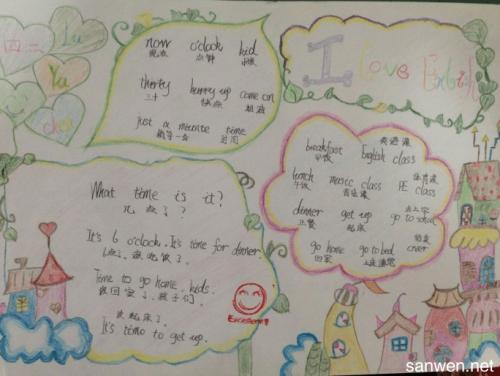 四二
Lu
Yu
chen
now o'clock kid
现在 点钟 小孩
thirty hurry up come on
三十 快点
just a minute time
稍等一会 时间
I Love English
What time is it?
几点了?
It's 6 o'clock. It's time for dinner.
6点了,该吃饭了。
Time to go home, kids.
该回家了,孩子们。
该起床了。
It's time to get up.
Excellent!
英语课
breakfast English class
早饭 体育课
lunch music class PE class
午饭 音乐课 去上学
dinner get up go to school
正餐 起床 结束
go home go to bed over
回家 上床睡觉
sanwen.net